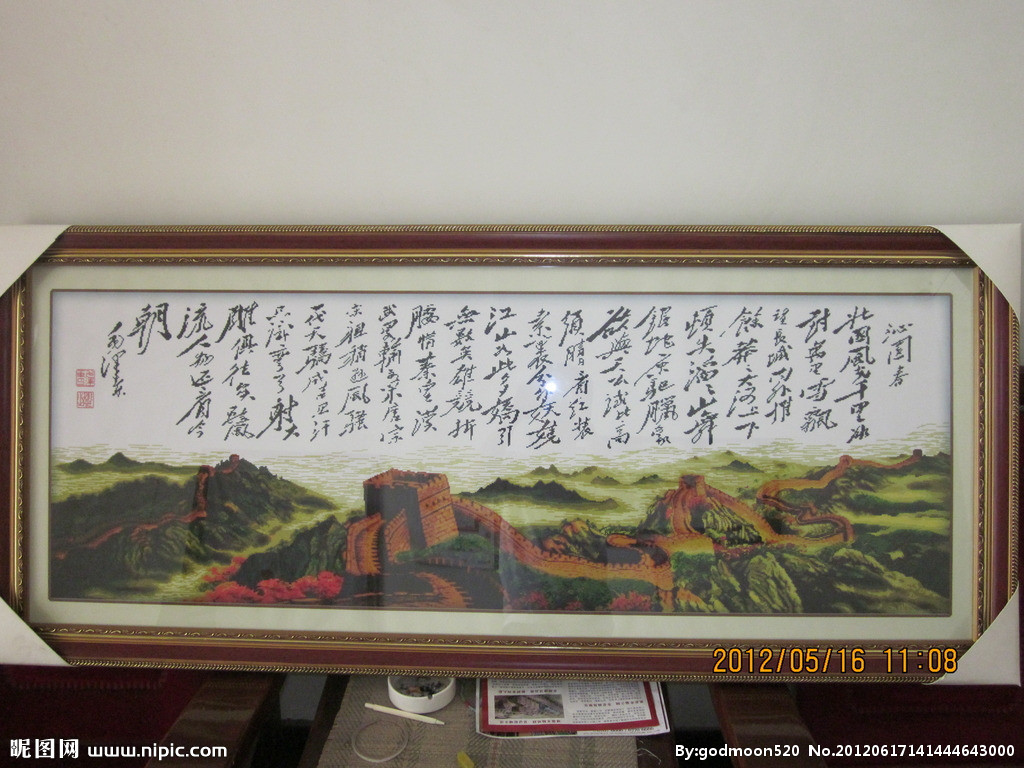 沁园春
北国风光千里冰
封万里雪飘
望长城内外惟
馀莽莽大河上下
顿失滔滔山舞
银蛇原驰腊象
欲与天公试比高
须晴日看红装
素裹分外妖娆
江山如此多娇引
无数英雄竞折
腰惜秦皇汉
武略输文采唐宗
宋祖稍逊风骚
一代天骄成吉思汗
只识弯弓射大
雕俱往矣数风
流人物还看今
朝
毛泽东
2012/05/16 11:08
昵图网 www.nipic.com
By:godmoon520 No.20120617141444643000